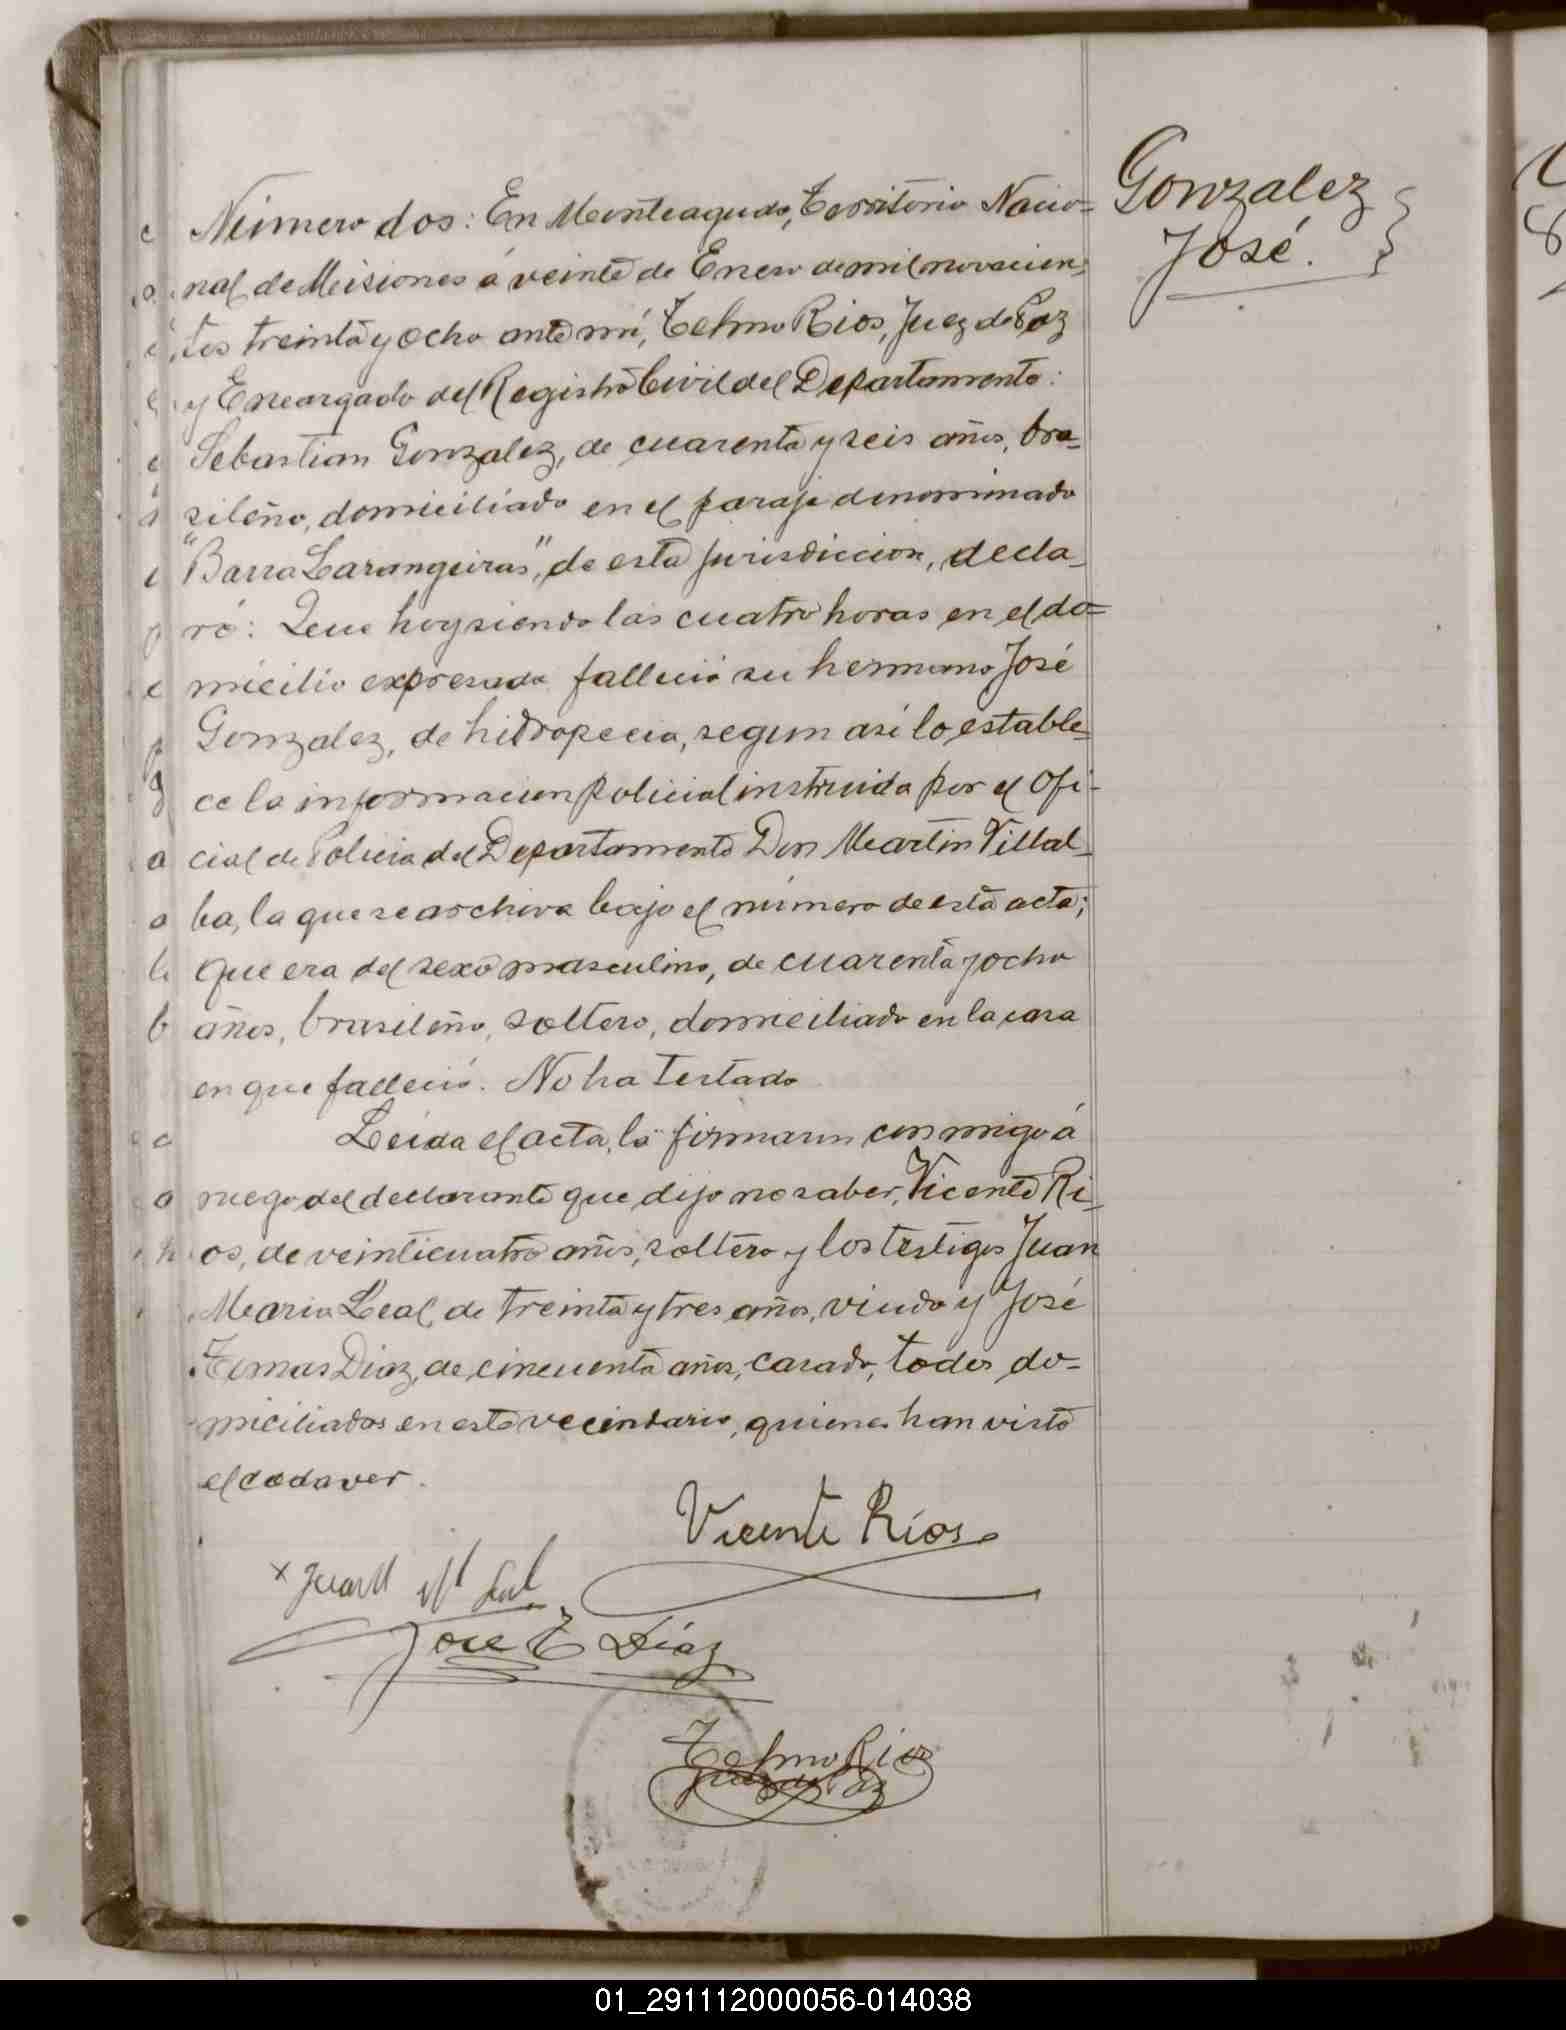 Gonzalez
José.
Número dos: En Monteagudo, Territorio Nacio=
nal de Misiones á veinte de Enero de mil novecien=
tos treinta y ocho ante mí, Telmo Rios, Juez de Paz
y Encargado del Registro Civil del Departamento:
Sebastian Gonzalez, de cuarenta y seis años, bra=
sileño, domiciliado en el paraje denominado
"Barra Larangeiras", de esta jurisdiccion, decla=
ró: Que hoy siendo las cuatro horas en el do=
micilio expresado falleció su hermano José
Gonzalez, de hidropecia, segun así lo estable=
ce la informacion policial instruida por el Ofi-
cial de Policia del Departamento Don Martin Villal=
ba, la que se archiva bajo el número de esta acta;
que era del sexo masculino, de cuarenta y ocho
años, brasileño, soltero, domiciliado en la casa
en que falleció. No ha testado
Leida el acta, la firmaron conmigo á
ruego del declarante que dijo no saber, Vicente Ri=
os, de veinticuatro años, soltero y los testigos Juan
Maria Leal, de treinta y tres años, viudo y José
Tomas Diaz, de cincuenta años, casado, todos do=
miciliados en este vecindario, quienes han visto
el cadaver.
Vicente Ríos
x Juan M Leal
Jose T Díaz
Telmo Rios
Juez de Paz
01_291112000056-014038